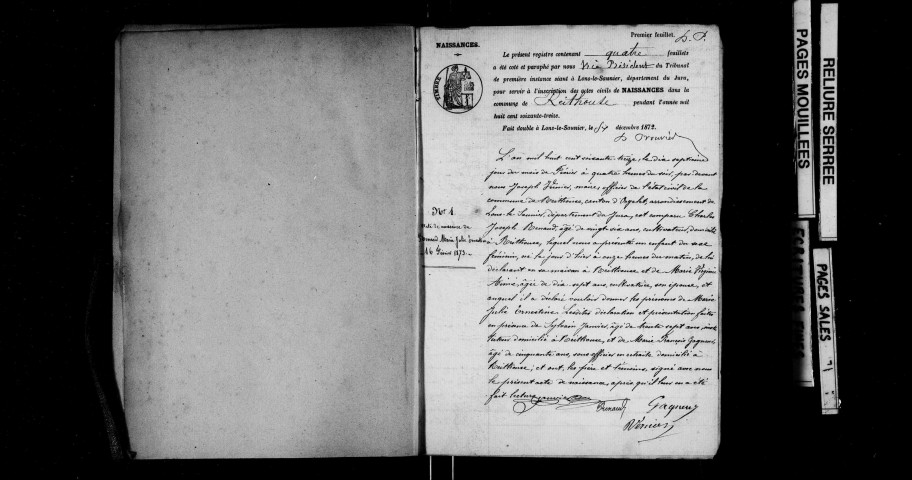 Premier feuillet. D. P.
NAISSANCES.
TIMBRE
Le présent registre contenant quatre feuillets
a été coté et paraphé par nous Vice Président du Tribunal
de première instance séant à Lons-le-Saunier, département du Jura,
pour servir à l'inscription des actes civils de NAISSANCES dans la
commune de Reithouse pendant l'année mil
huit cent soixante-treize.
Fait double à Lons-le-Saunier, le 14 décembre 1872.
L'an mil huit cent soixante treize, le dix septième
jour du mois de Février à quatre heures du soir, par devant
nous Joseph Vernier, maire, officier de l'état civil de la
commune de Reithouse, canton d'Orgelet, arrondissement de
Lons-le-Saunier, département du Jura, est comparu Charles
Joseph Renaud, âgé de vingt six ans, cultivateur, domicilié
à Reithouse, lequel nous a présenté un enfant du sexe
féminin, né le jour d'hier à onze heures du matin, de lui
déclarant en sa maison à Reithouse et de Marie Virginie
âgée de dix sept ans, cultivatrice, son épouse, et
auquel il a déclaré vouloir donner les prénoms de Marie
Julie Ernestine. Lesdites déclaration et présentation faites
en présence de Sylvain Janvier, âgé de trente sept ans, insti
tuteur domicilié à Reithouse, et de Marie François Gagneur,
âgé de cinquante ans, sous officier en retraite domicilié à
Reithouse; et ont, les père et témoins, signé avec nous
le présent acte de naissance, après qu'il leur en a été
fait lecture.
Nº 1.
Acte de naissance de
Renaud Marie Julie Ernestine
16 Février 1873.
Janvier
Renaud
Gagneur
Vernier
RELIURE SERRÉE
PAGES MOUILLÉES
PAGES SALES